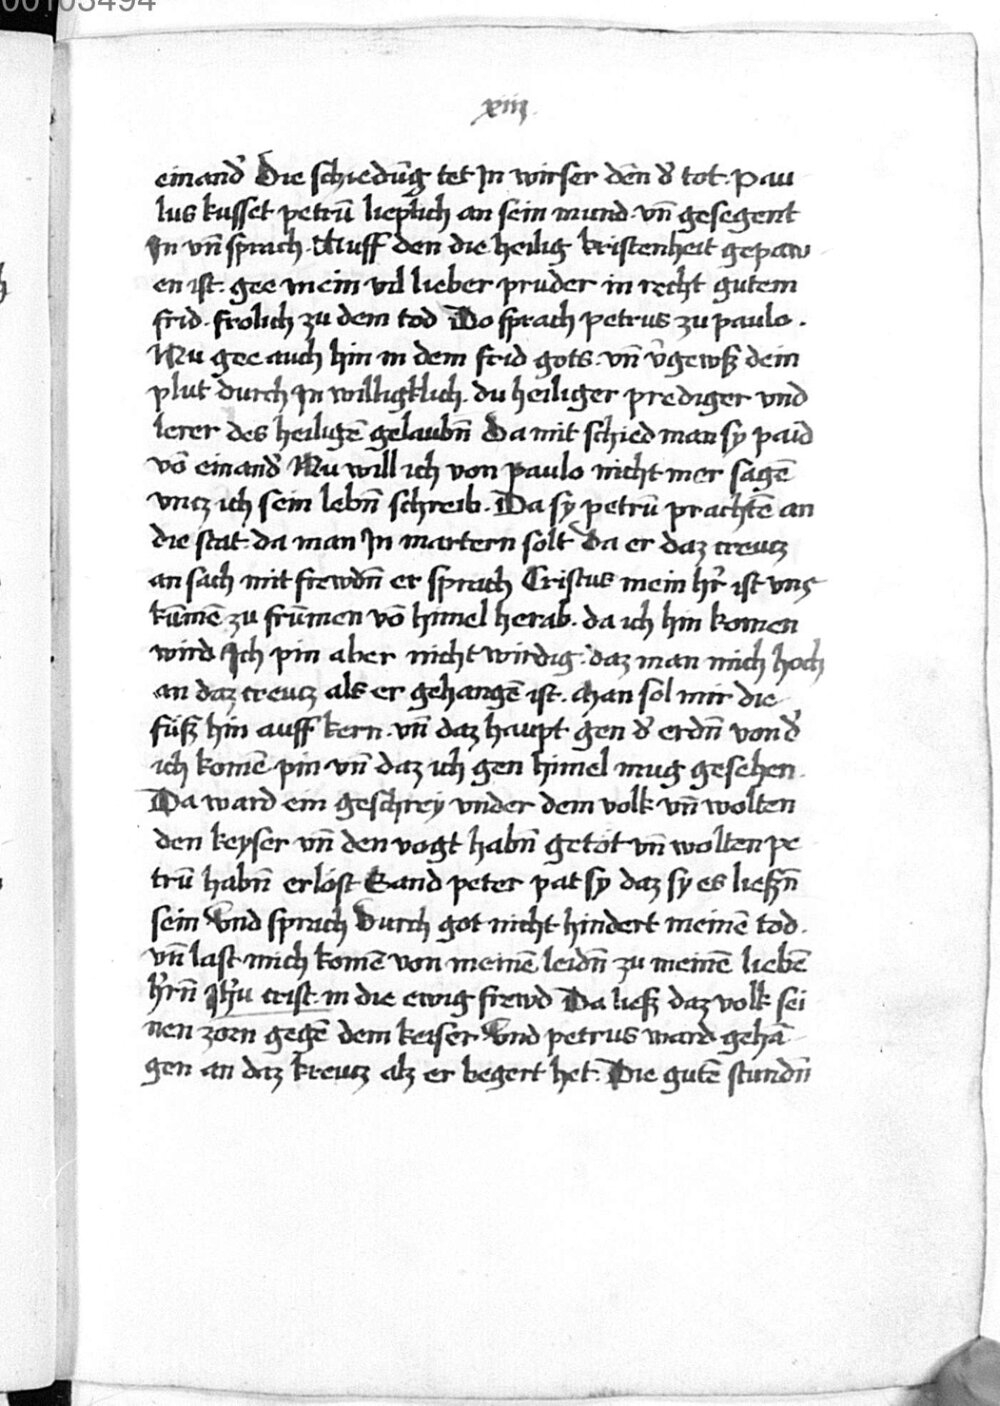 00103494
xiij.
einand᷑ Die schiedūg tet Jn wirser dēn d᷑ tot. Pau
lus kusset petrū lieplich an sein mund. vn̄ gesegent
Jn vn̄ sprach. Auff den die heilig kristenheit gepaw
en ist. gee mein vil lieber pruder in recht gutem
frid. frolich zu dem tod Do sprach petrus zu paulo.
Nu gee auch hin in dem frid gots. vn̄ v᷑gewß dein
plut durch Jn willigklich. du heiliger prediger vnd
lerer des heiligē gelaubn̄ Da mit schied man sy paid
vō einand᷑ Nu will ich von paulo nicht mer sagē
vncz ich sein lebn̄ schreib. Da sy petrū prachtē an
die stat. da man Jn martern solt Da er daz creucz
an sach mit frewdn̄ er sprach Cristus mein hr᷑ ist vns
kūmē zu frūmen vō himel herab. da ich hin komen
wird Ich pin aber nicht wirdig. daz man mich hoch
an daz creucz als er gehangē ist. Man sol mir die
füß hin auff kern. vn̄ daz haupt gen d᷑ erdn̄ von d᷑
ich komē pin vn̄ daz ich gen himel mug gesehen.
Da ward ein geschrey vnder dem volk vn̄ wolten
den keyser vn̄ den vogt habn̄ getöt vn̄ wolten pe
trū habn̄ erlöst Sand peter pat sy daz sy es lieſzn̄
sein Vnd sprach Durch got nicht hindert meinē tod.
vn̄ last mich komē von meinē leidn̄ zu meinē liebē
h᷑rn̄ Jh᷑u crist. in die ewig frewd Da ließ daz volk sei
nen zorn gegē dem keiser Vnd petrus ward gehā
gen an daz kreucz alz er begert het. Die gutē stundn̄